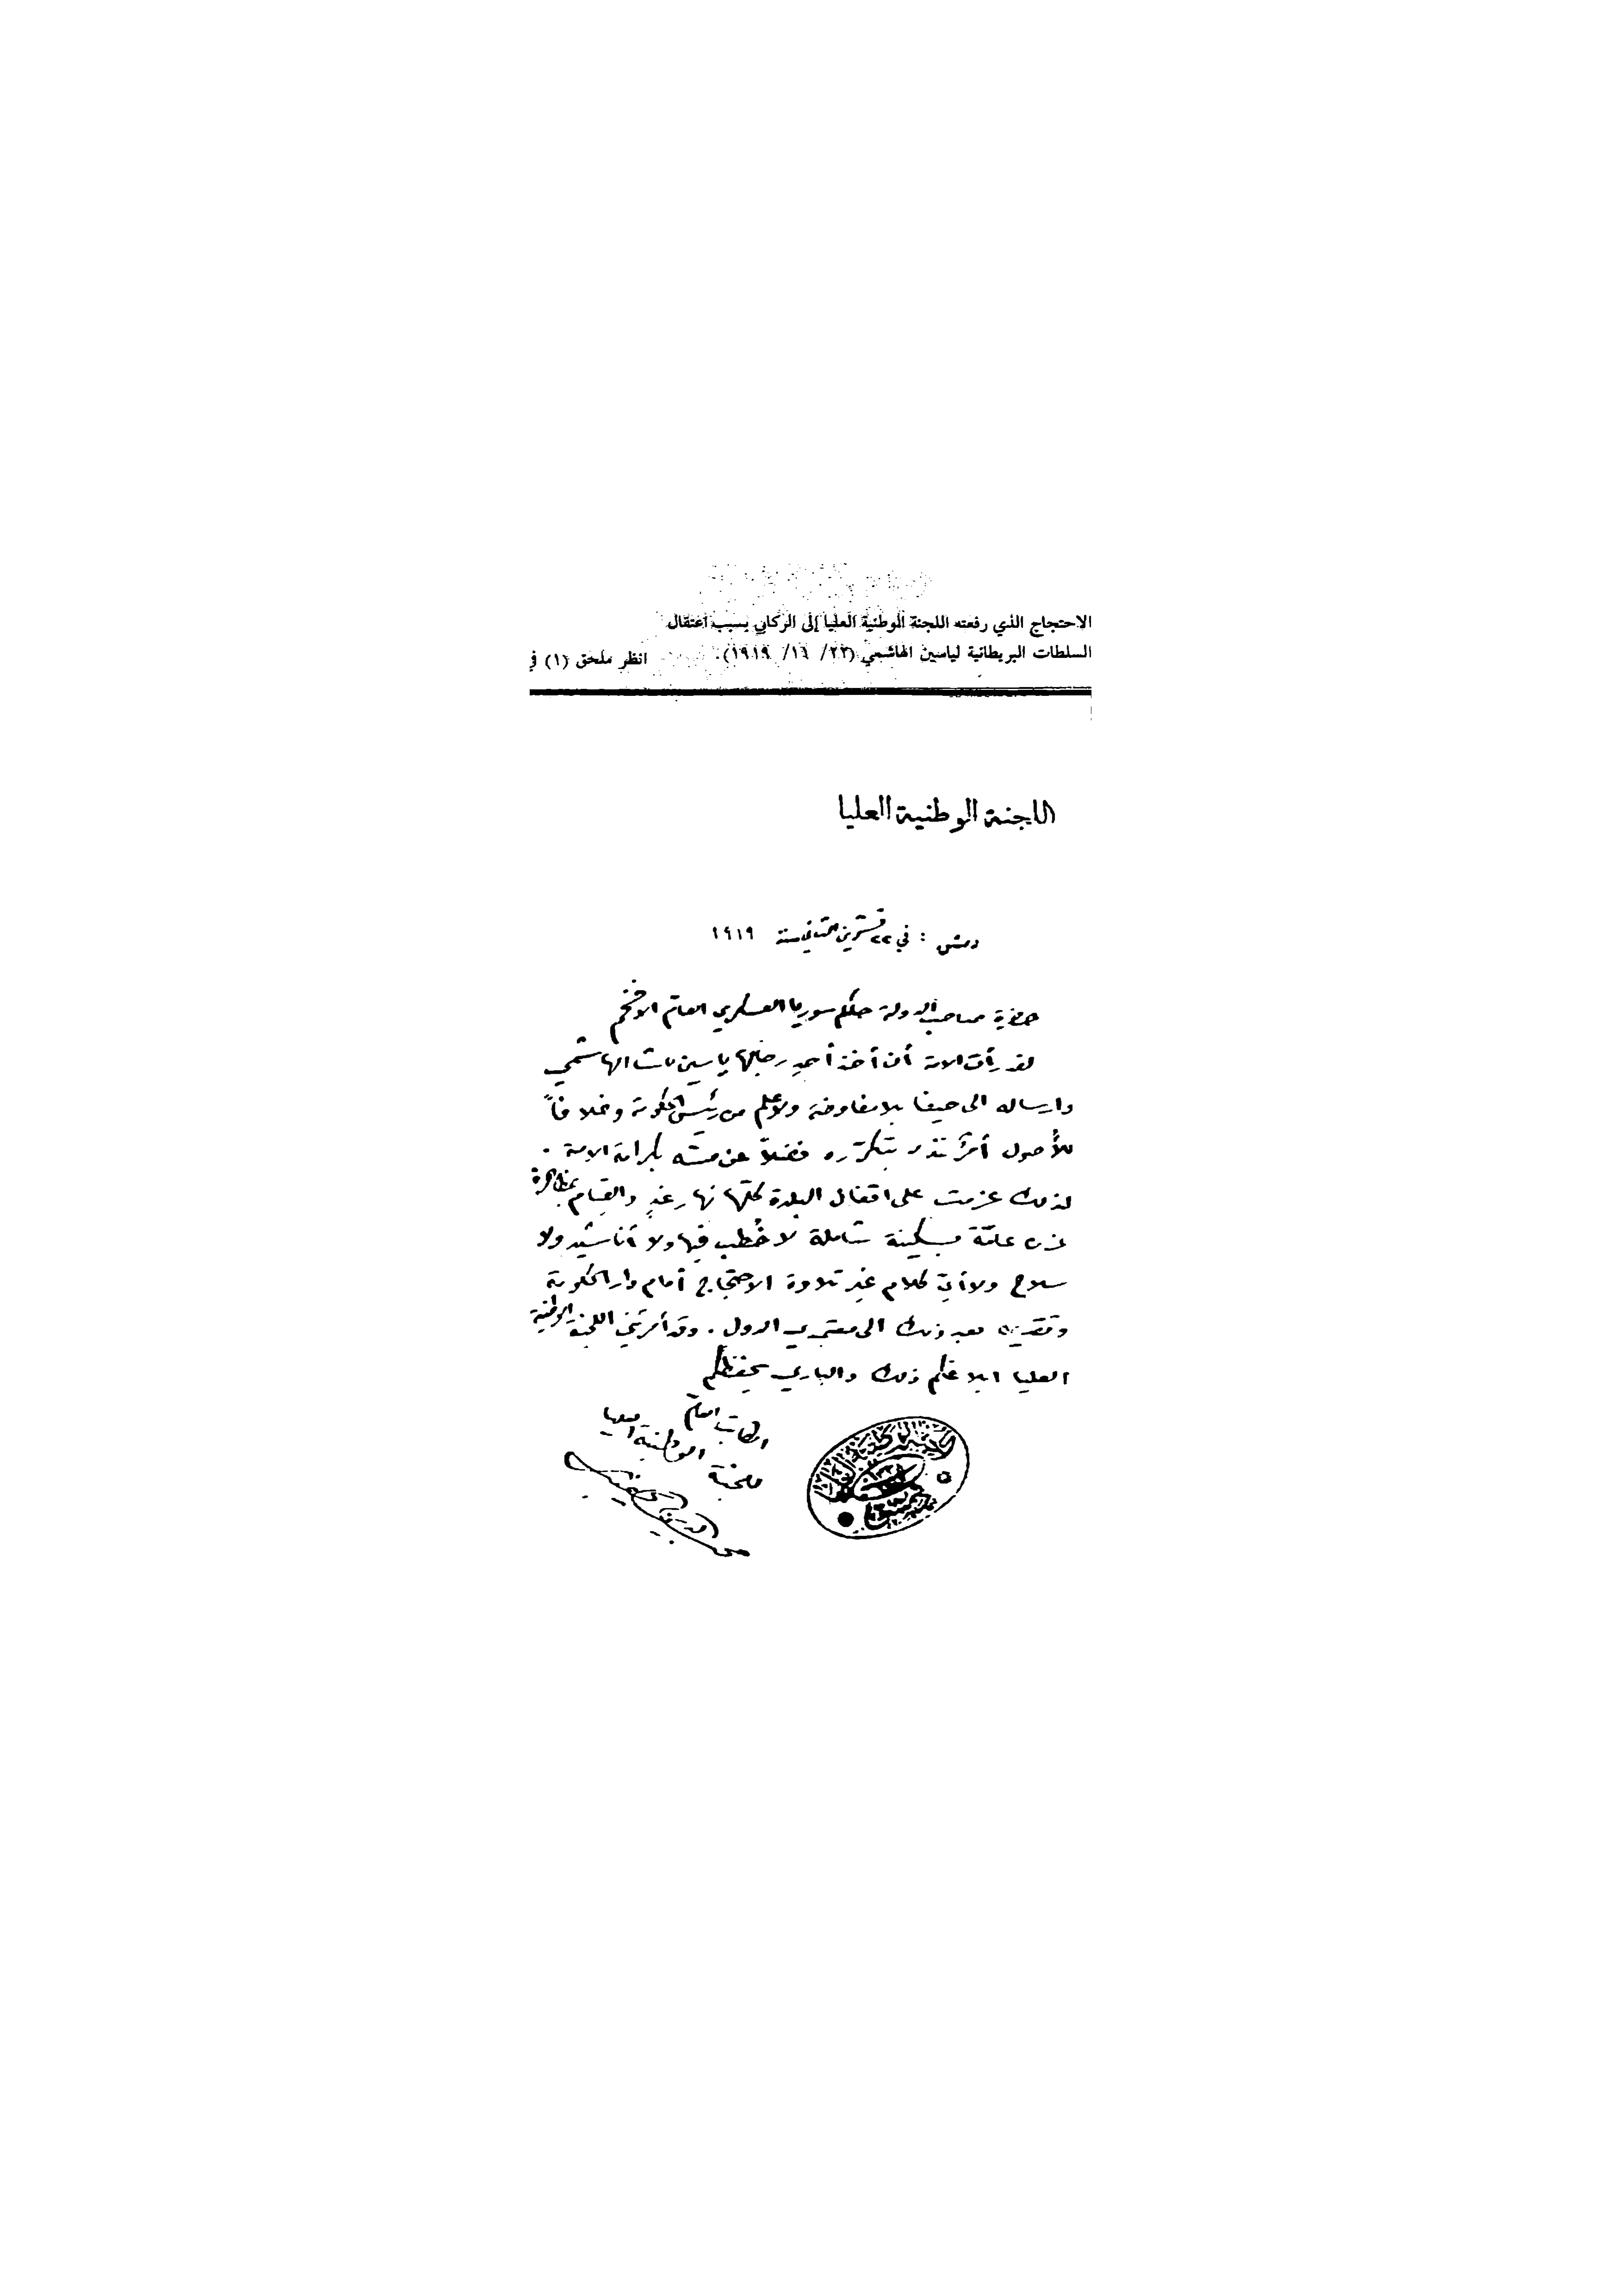 الاحتجاج الذي رفعته اللجنة الوطنية العليا إلى الركابي بسبب اعتقال
السلطات البريطانية لياسين الهاشمي (٢٢/ ١١/ ١٩١٩).
انظر ملحق (١) في
اللجنة الوطنية العليا
دمشق : في ٢٢ تشرين الثاني سنة ١٩١٩
حضرة صاحب الدولة حاكم سوريا العسكري العام الافخم
لقد رأت الامة أن أخذ أحد رجالها ياسين باشا الهاشمي
وارساله الى حيفا بلا مفاوضة ولا علم من رئيس الحكومة وخلافاً
للأصول أمرٌ تنذر بتكرّره فضلاً عن مسّه بكرامة الامة .
لذلك عزمت على اقفال البلدة كلّها نهار غدٍ والقيام بمظاهرة
حزن عامّة بسكينة شاملة لا خُطب فيها ولا أناشيد ولا
سلاح ولا أيّ كلام غير تلاوة الاحتجاج أمام دار الحكومة
وتقديمه بعد ذلك الى معتمدي الدول . وقد أمرتني اللجنة الوطنية
العليا ابلاغكم ذلك والباري يحفظكم
الكاتب العام
للجنة الوطنية العليا